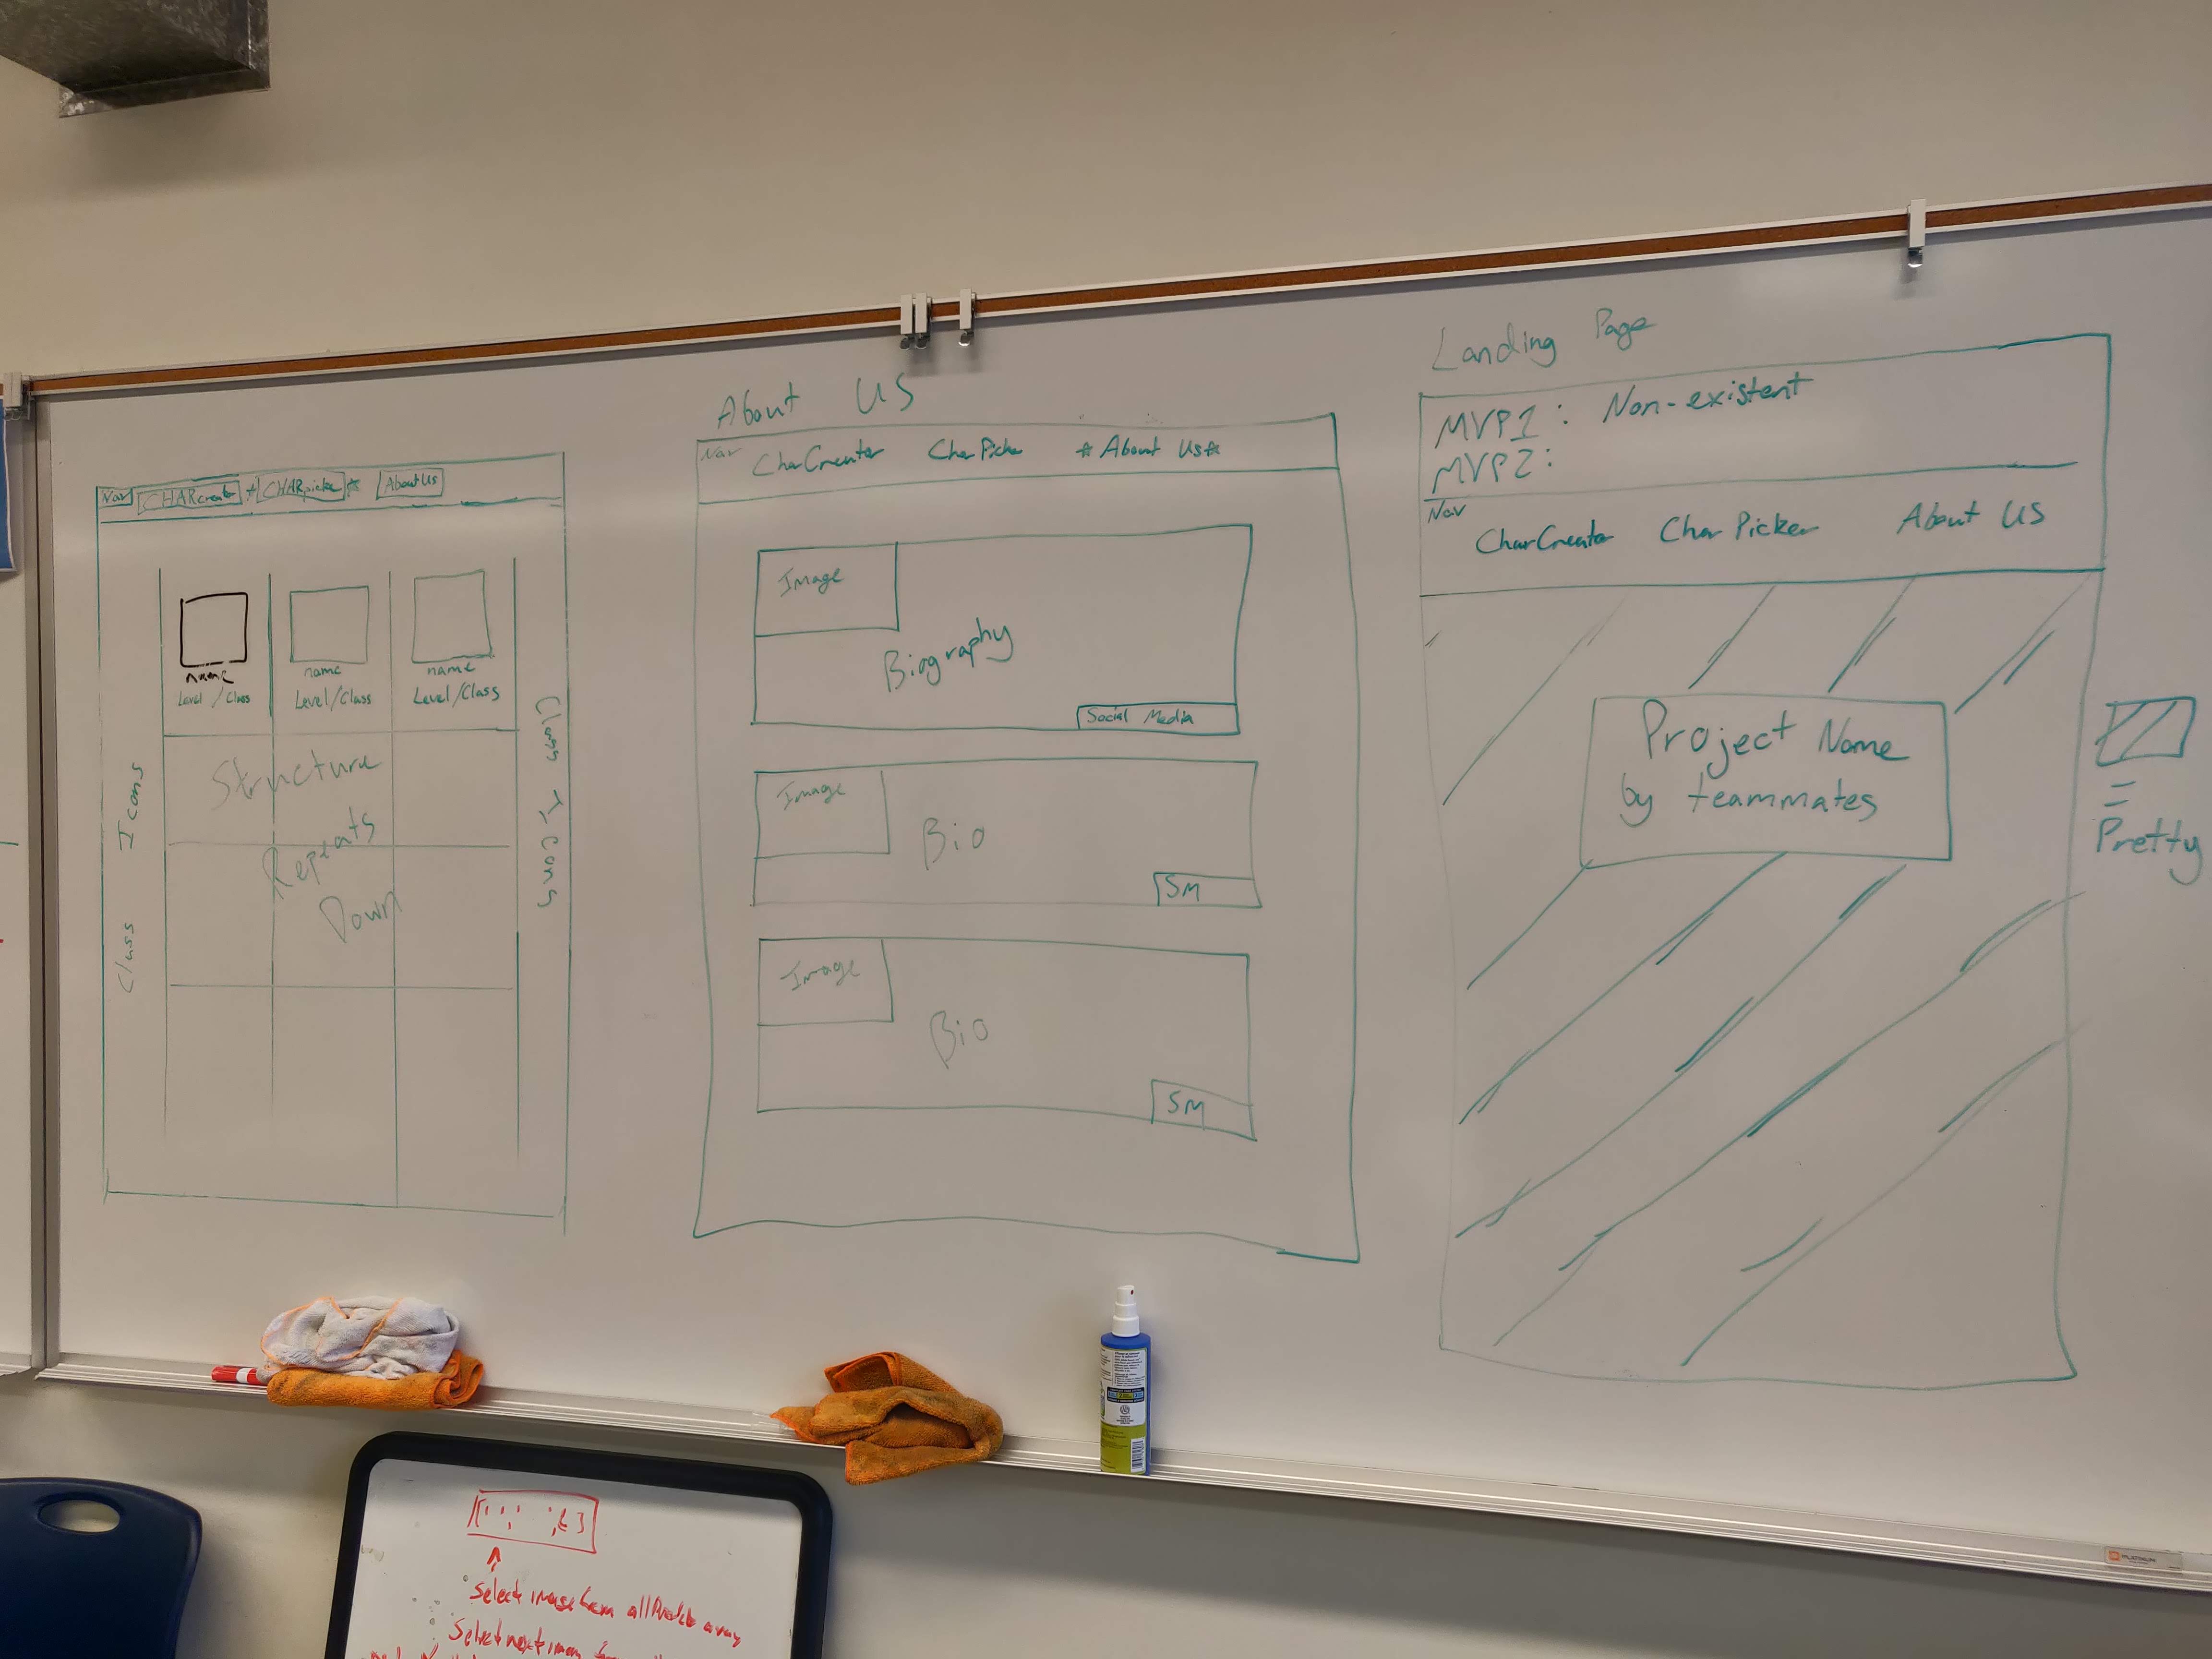 Nav CHARcreator * CHARpicker * About Us
name
Level / Class
name
Level/Class
name
Level/Class
Structure
Repeats
Down
Class Icons
Class Icons
About US
Nav CharCreator CharPicker * About Us *
Image
Biography
Social Media
Image
Bio
SM
Image
Bio
SM
Landing Page
MVP1: Non-existent
MVP2:
Nav
CharCreator CharPicker About US
Project Name
by teammates
=
Pretty
Select image from allProducts array
Select next